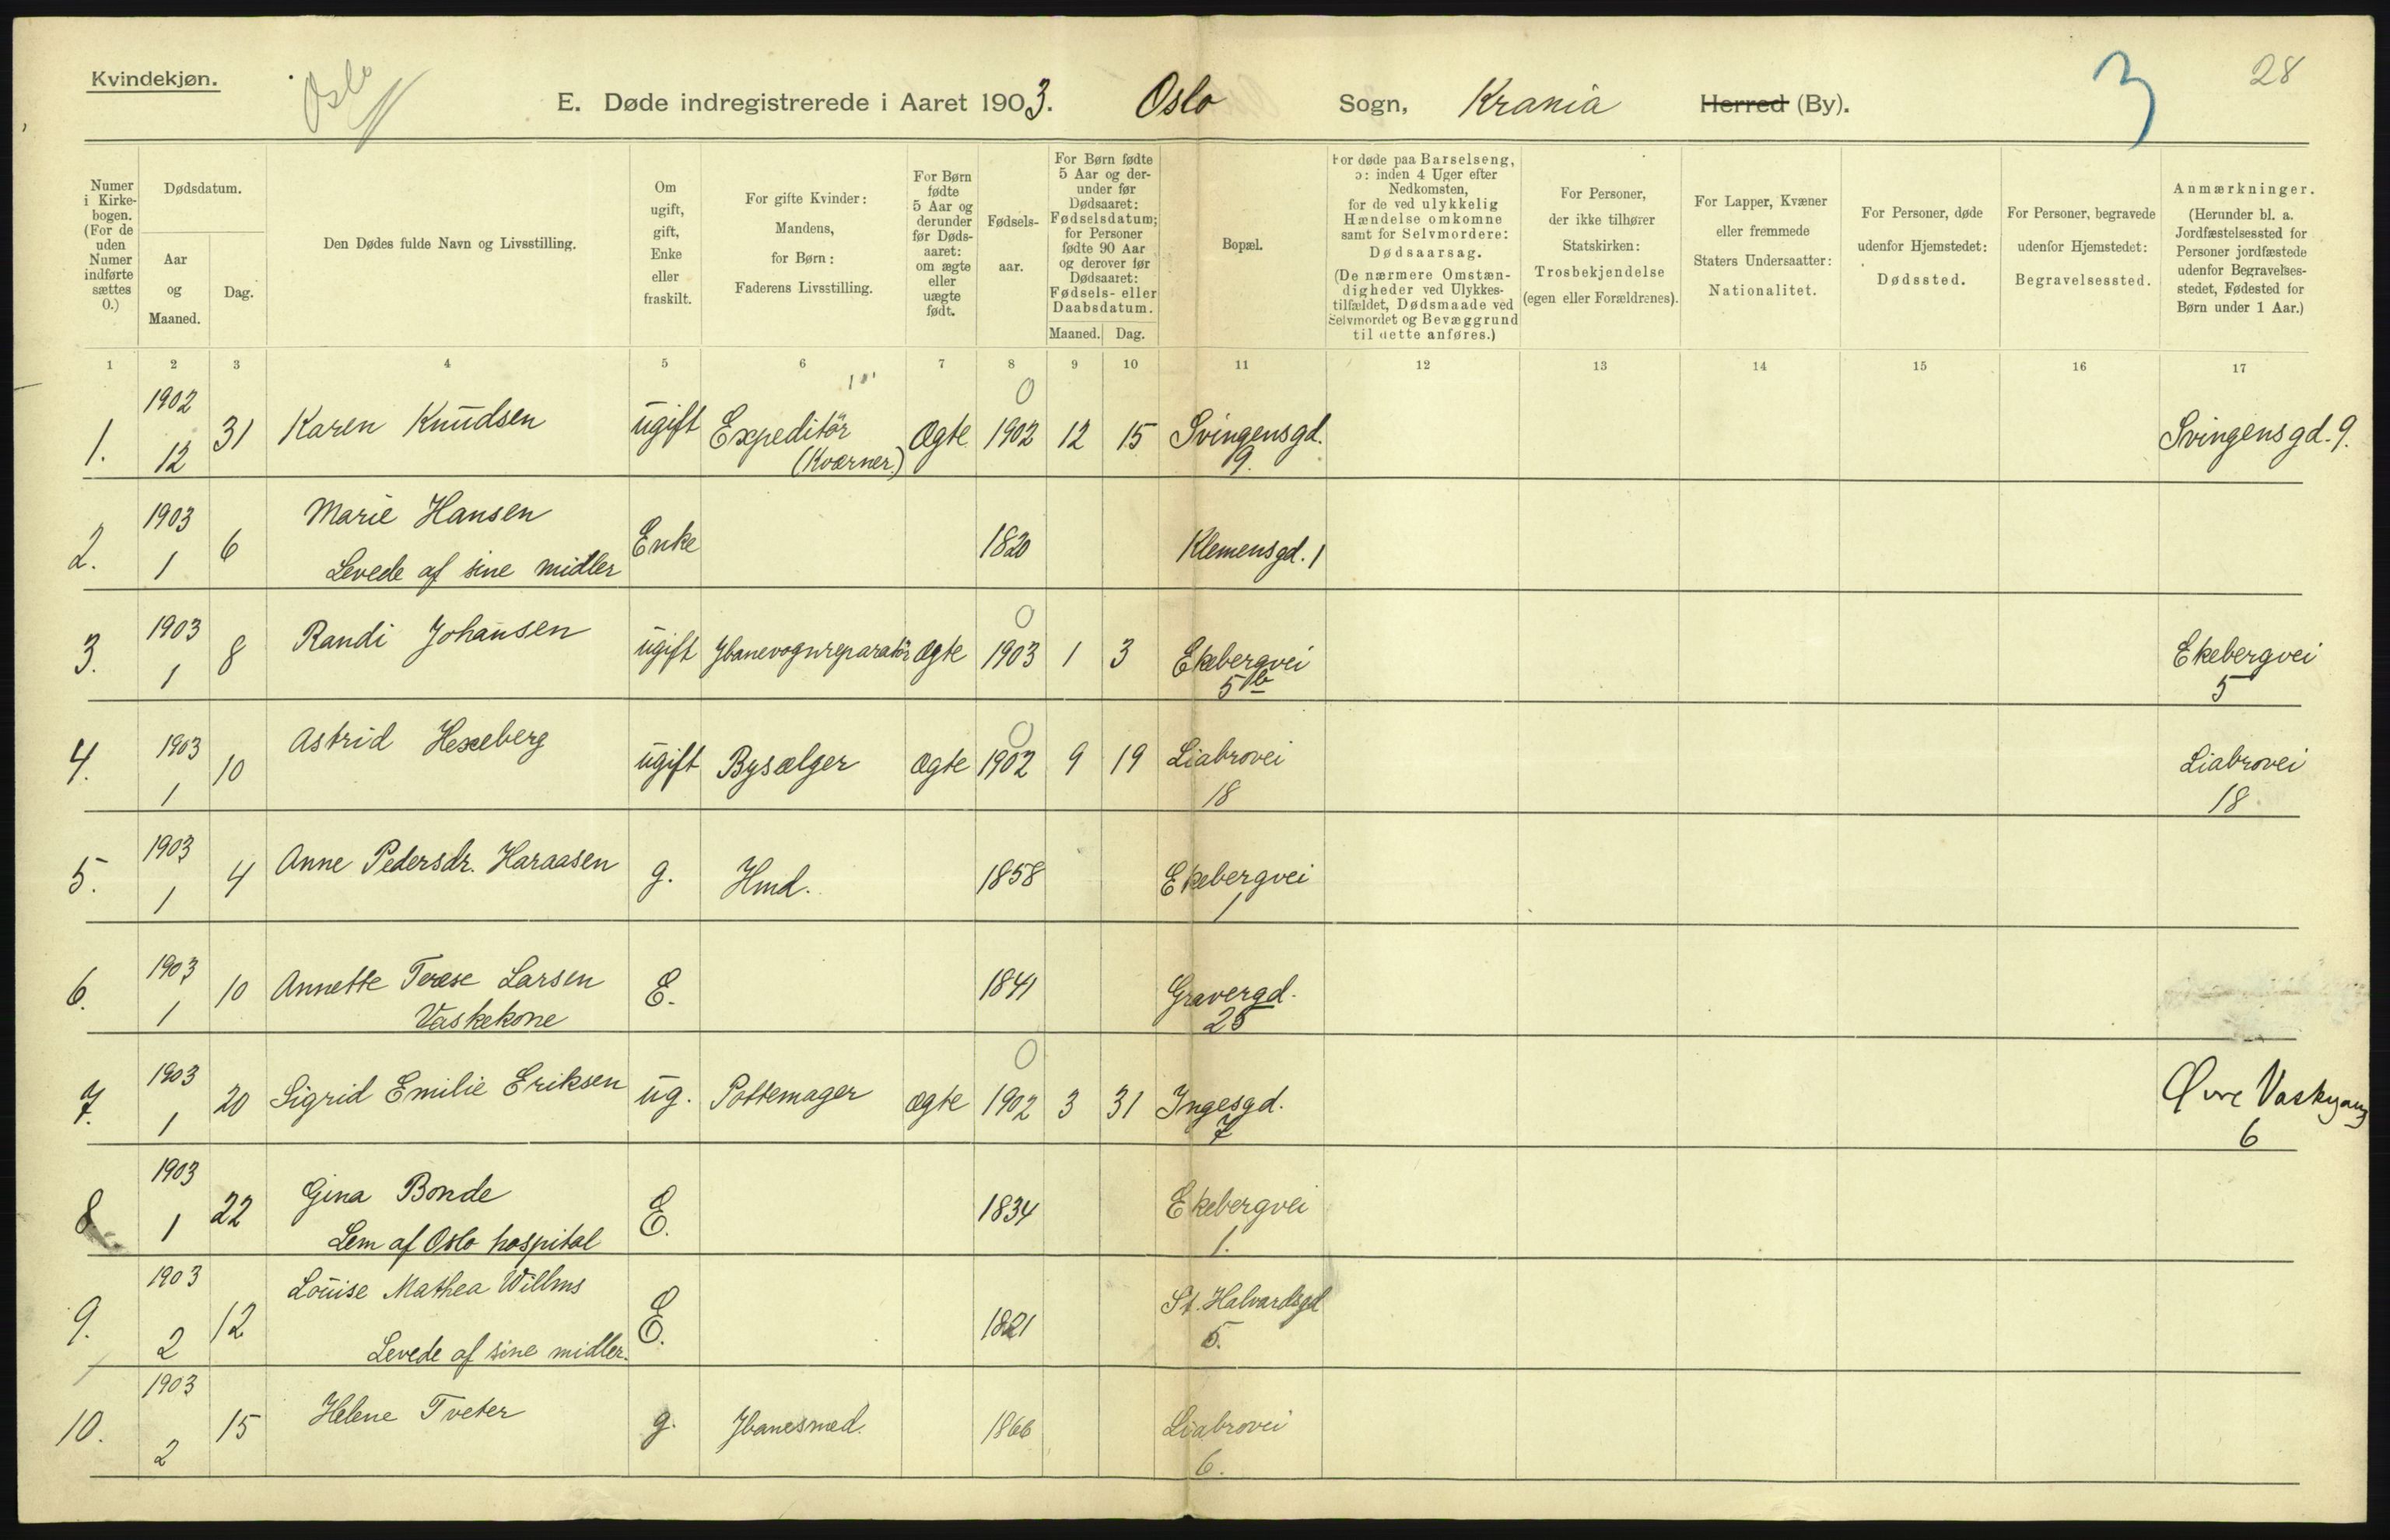 Kvindekjøn.
Oslo
E. Døde indregistrerede i Aaret 1903. Oslo Sogn, Krania Herred (By).
3
28
Numer i Kirkebogen. (For de uden Numer indførte sættes 0.)
Dødsdatum.
Aar og Maaned.
Dag.
Den Dødes fulde Navn og Livsstilling.
Om ugift, gift, Enke eller fraskilt.
For gifte Kvinder: Mandens, for Børn: Faderens Livsstilling.
For Børn fødte 5 Aar og derunder før Dødsaaret: om ægte eller uægte født.
Fødselsaar.
For Børn fødte 5 Aar og derunder før Dødsaaret: Fødselsdatum; for Personer fødte 90 Aar og derover før Dødsaaret: Fødsels- eller Daabsdatum.
Maaned. Dag.
Bopæl.
For døde paa Barselseng, ɔ: inden 4 Uger efter Nedkomsten, for de ved ulykkelig Hændelse omkomne samt for Selvmordere: Dødsaarsag. (De nærmere Omstændigheder ved Ulykkestilfældet, Dødsmaade ved Selvmordet og Bevæggrund til dette anføres.)
For Personer, der ikke tilhører Statskirken: Trosbekjendelse (egen eller Forældrenes).
For Lapper, Kvæner eller fremmede Staters Undersaatter: Nationalitet.
For Personer, døde udenfor Hjemstedet: Dødssted.
For Personer, begravede udenfor Hjemstedet: Begravelsessted.
Anmærkninger. (Herunder bl. a. Jordfæstelsessted for Personer jordfæstede udenfor Begravelsesstedet, Fødested for Børn under 1 Aar.)
1 2 3 4 5 6 7 8 9 10 11 12 13 14 15 16 17
1. 1902 12 31 Karen Knudsen ugift Expeditör (Kværner.) Ægte 0 1902 12 15 Svingensgd. 9. Svingensgd. 9.
2. 1903 1 6 Marie Hansen Levede af sine midler Enke 1820 Klemensgd. 1
3. 1903 1 8 Randi Johansen ugift Jbanevognreparatör Ægte 0 1903 1 3 Ekebergvei 5b Ekebergvei 5
4. 1903 1 10 Astrid Hexeberg ugift Bysælger Ægte 0 1902 9 19 Liabrovei 18 Liabrovei 18
5. 1903 1 4 Anne Pedersdr. Haraasen g. Hmd. 1858 Ekebergvei 1
6. 1903 1 10 Annette Terese Larsen Vaskekone E. 1841 Gravergd. 25
7. 1903 1 20 Sigrid Emilie Eriksen ug. Pottemager ægte 0 1902 3 31 Ingesgd. 7 Øvre Vaskgang 6
8 1903 1 22 Gina Bonde Lem af Oslo hospital E. 1834 Ekebergvei 1.
9. 1903 2 12 Louise Mathea Willms Levede af sine midler. E. 1821 St. Halvardsgd 5.
10. 1903 2 15 Helene Tveter g. Jbanesmed. 1866 Liabrovei 6.